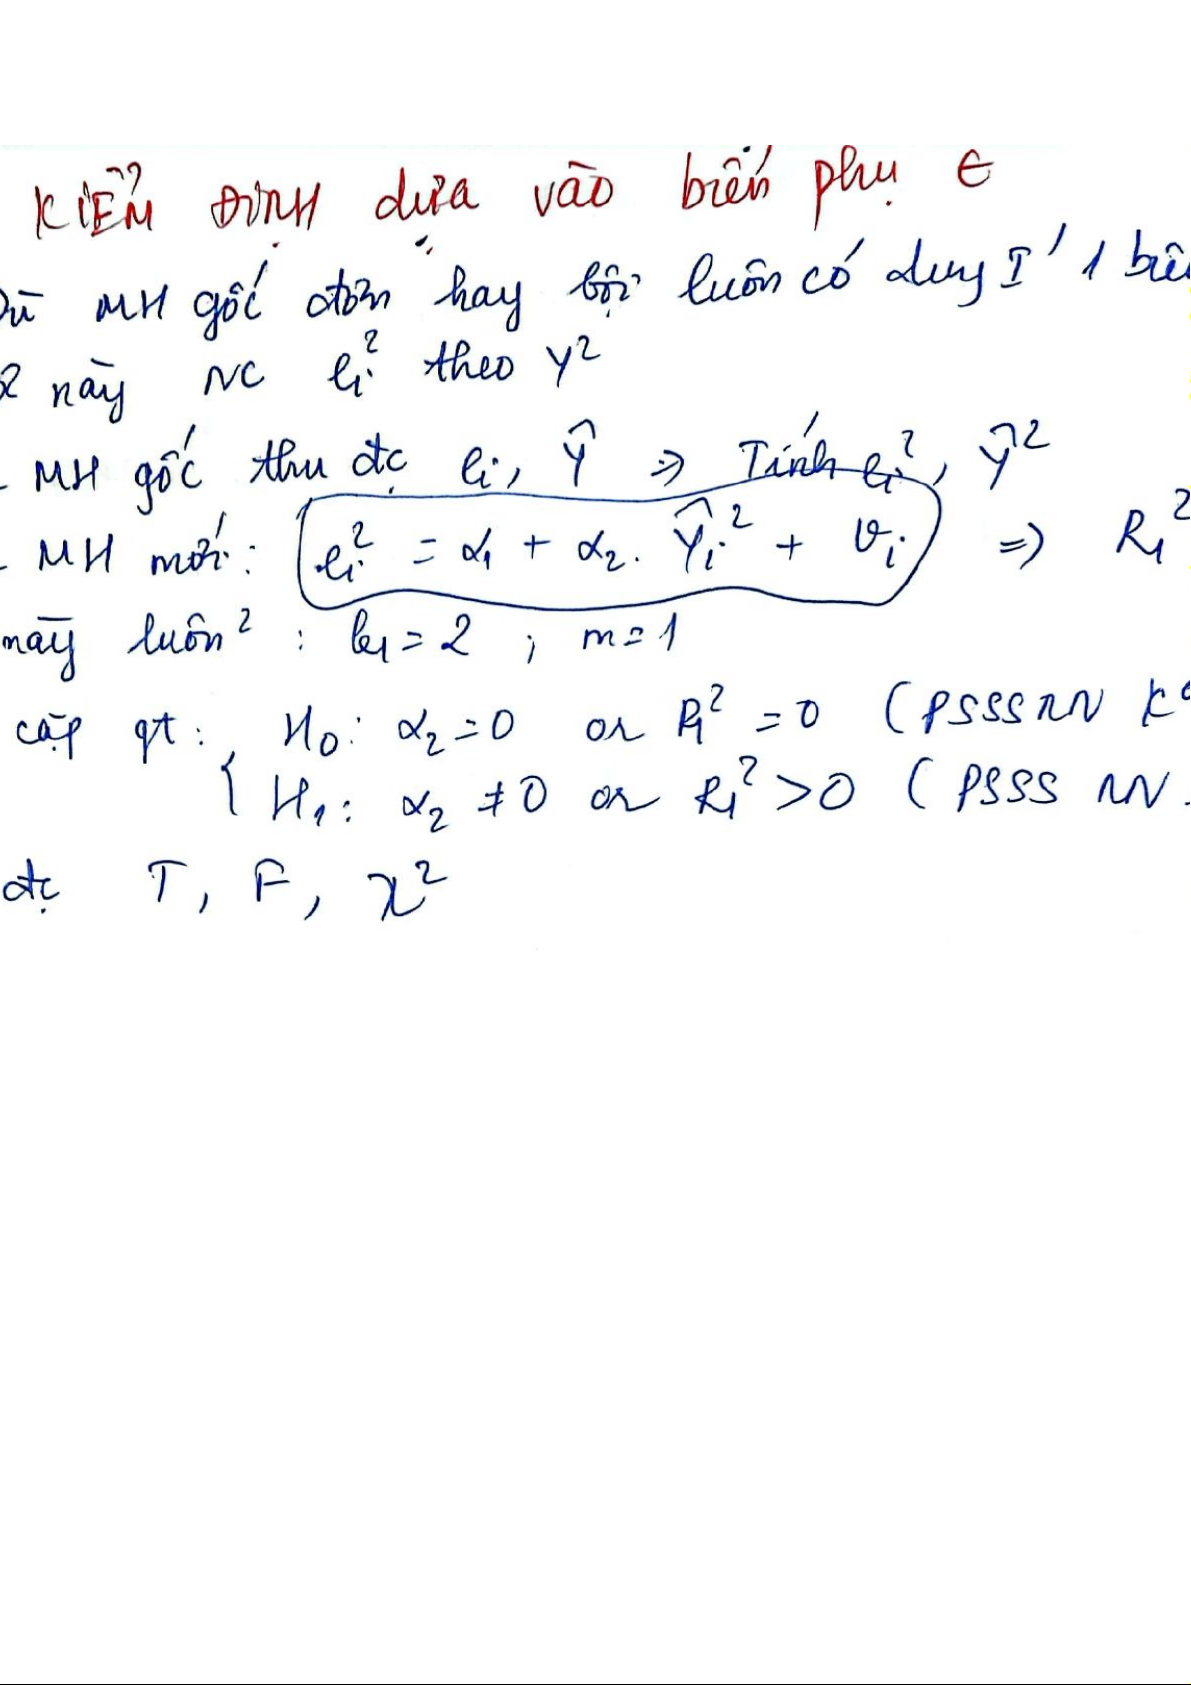 KIỂM ĐỊNH dựa vào biến phụ ∈
Dù MH gốc đơn hay bội luôn có duy I' 1 biế
2 này NC ei² theo Y²
- MH gốc thu đc ei, Ŷ => Tính ei², Ŷ²
- MH mới: ei² = α1 + α2. Ŷi² + vi => R1²
này luôn² : k1 = 2 ; m = 1
cặp gt: { H0: α2 = 0 or R1² = 0 (PSSSNN K°
H1: α2 ≠ 0 or R1² > 0 ( PSSS NN
đc T, F, χ²